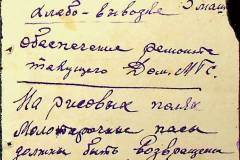 хлебо-вывозке Эмаш
обеспечение ремонта
текущего Дом. МТС.
На рисовых полях
Молотирочные пасы
должны быть возвращены